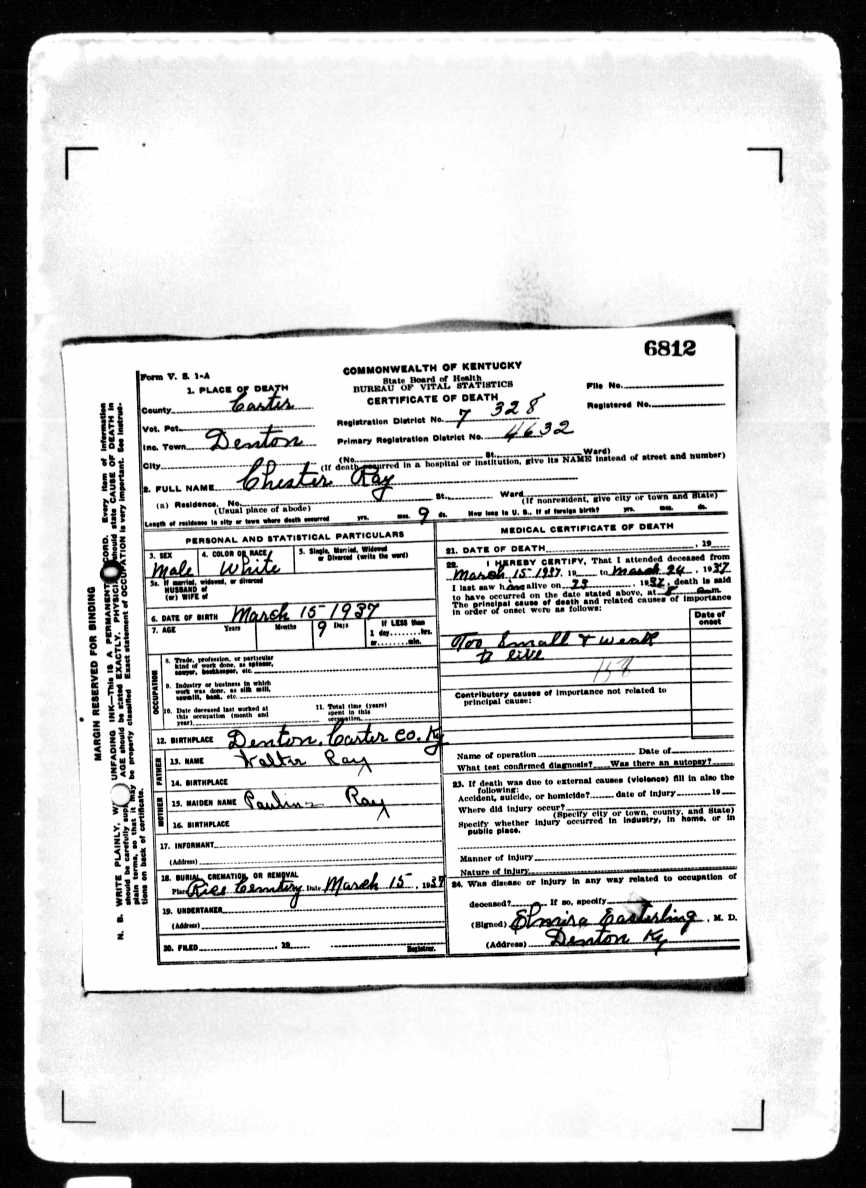 6812
Form V. S. 1-A
COMMONWEALTH OF KENTUCKY
State Board of Health
BUREAU OF VITAL STATISTICS
CERTIFICATE OF DEATH
File No.
Registered No.
1. PLACE OF DEATH
County Carter
Vot. Pct.
Inc. Town Denton
City
Registration District No. 7 328
Primary Registration District No. 4632
(No. St., Ward)
(If death occurred in a hospital or institution, give its NAME instead of street and number)
2. FULL NAME Chester Ray
(a) Residence, No. St., Ward
(Usual place of abode) (If nonresident, give city or town and State)
Length of residence in city or town where death occurred yrs. mos. 9 ds. How long in U. S., if of foreign birth? yrs. mos. ds.
PERSONAL AND STATISTICAL PARTICULARS
3. SEX
Male
4. COLOR OR RACE
White
5. Single, Married, Widowed
or Divorced (write the word)
5a. If married, widowed, or divorced
HUSBAND of
(or) WIFE of
6. DATE OF BIRTH March 15-1937
7. AGE Years Months 9 Days
If LESS than
1 day, hrs.
or min.
OCCUPATION
8. Trade, profession, or particular
kind of work done, as spinner,
sawyer, bookkeeper, etc.
9. Industry or business in which
work was done, as silk mill,
sawmill, bank, etc.
10. Date deceased last worked at
this occupation (month and
year)
11. Total time (years)
spent in this
occupation
12. BIRTHPLACE Denton, Carter Co. Ky
FATHER
13. NAME Walter Ray
14. BIRTHPLACE
MOTHER
15. MAIDEN NAME Pauline Ray
16. BIRTHPLACE
17. INFORMANT
(Address)
18. BURIAL, CREMATION, OR REMOVAL
Place Rice Cemetery Date March 15, 1937
19. UNDERTAKER
(Address)
20. FILED , 19 Registrar.
MEDICAL CERTIFICATE OF DEATH
21. DATE OF DEATH , 19
22. I HEREBY CERTIFY, That I attended deceased from
March 15-1937, 19 to March 24, 1937
I last saw him alive on 23, 1937, death is said
to have occurred on the date stated above, at 8 a.m.
The principal cause of death and related causes of importance
in order of onset were as follows:
Date of
onset
Too Small & Weak
to live
158
Contributory causes of importance not related to
principal cause:
Name of operation Date of
What test confirmed diagnosis? Was there an autopsy?
23. If death was due to external causes (violence) fill in also the
following:
Accident, suicide, or homicide? date of injury 19
Where did injury occur?
(Specify city or town, county, and State)
Specify whether injury occurred in industry, in home, or in
public place.
Manner of injury
Nature of injury
24. Was disease or injury in any way related to occupation of
deceased? If so, specify
(Signed) Elmira Easterling, M. D.
(Address) Denton Ky
MARGIN RESERVED FOR BINDING
N. B. WRITE PLAINLY, UNFADING INK—THIS IS A PERMANENT Every item of information
should be carefully AGE should be stated EXACTLY. should state CAUSE OF DEATH in
plain terms, so that it may be properly classified. Exact statement of OCCUPATION is very important. See instruc-
tions on back of certificate.